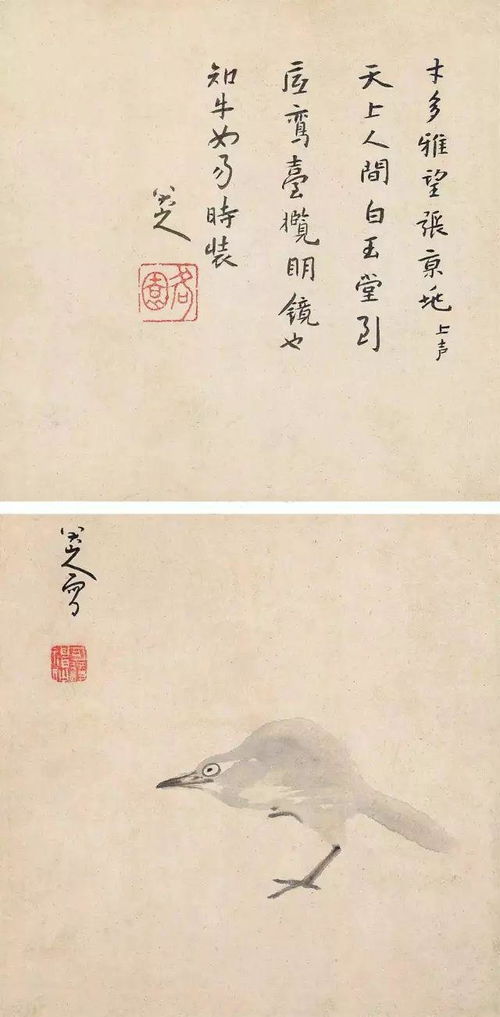 才多雅望張京兆上声
天上人間白玉堂到
底鸞臺攬明鏡也
知牛女易時裝
八大山人
八大山人寫